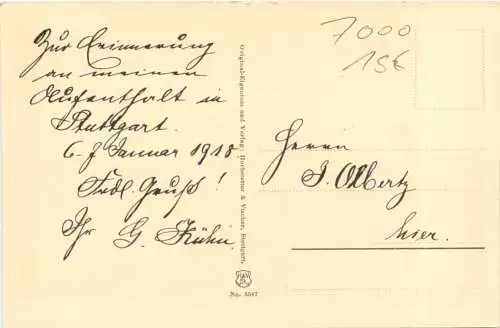 Zur Erinnerung
an meinen
Aufenthalt in
Stuttgart.
6-7 Januar 1918
Frdl. Gruß!
Ihr G. Kühn.
Original-Eigentum und Verlag: Hochstetter & Vischer, Stuttgart.
H&V
St.
No. 5547
7000
15€
Herrn
J. Olbertz
hier.